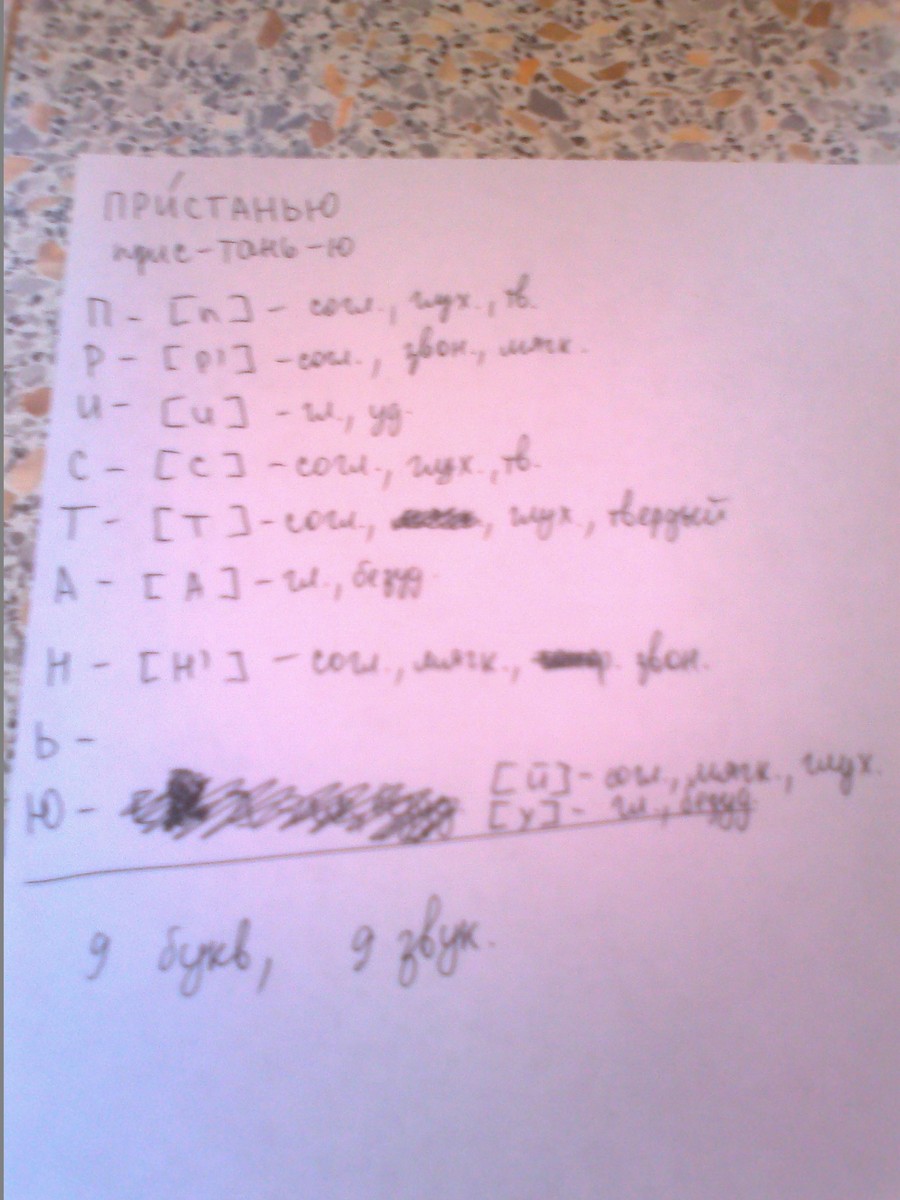 ПРИ́СТАНЬЮ
прис-тань-ю
П - [п] - согл., глух., тв.
Р - [р'] - согл., звон., мягк.
И - [и] - гл., уд.
С - [с] - согл., глух., тв.
Т - [т] - согл., , глух., твердый
А - [А] - гл., безуд.
Н - [н'] - согл., мягк., звон.
Ь -
[й] - согл., мягк., глух.
Ю - [у] - гл., безуд.
9 букв, 9 звук.